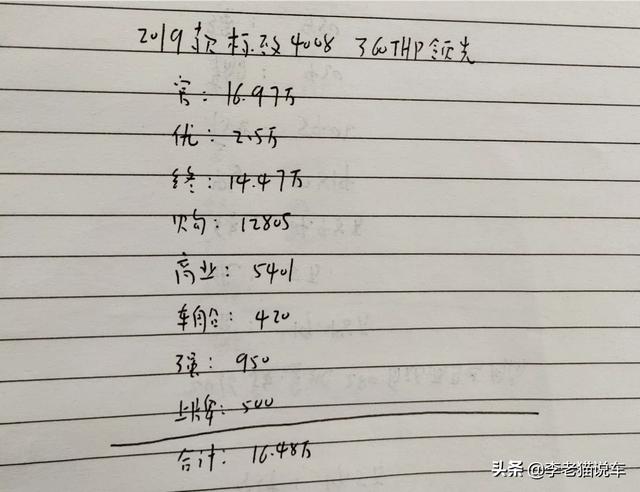 2019款标致4008 360THP领先
官：16.97万
优：2.5万
终：14.47万
购：12805
商业：5401
车船：420
强：950
上牌：500
合计：16.48万
头条 @李老猫说车